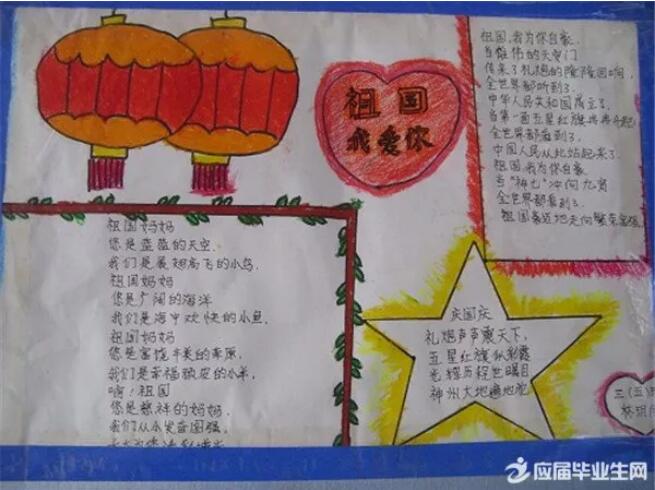 祖国
我爱你
祖国,我为你自豪.
当雄伟的天安门
传来了礼炮的隆隆回响,
全世界都听到了.
中华人民共和国成立了.
当第一面五星红旗冉冉升起
全世界都看到了.
中国人民从此站起来了.
祖国,我为你自豪.
当"神七"冲向九霄
全世界都看到了.
祖国最近地走向繁荣富强.
祖国妈妈
您是蓝蓝的天空.
我们是展翅高飞的小鸟.
祖国妈妈
您是广阔的海洋
我们是海中欢快的小鱼.
祖国妈妈
您是富饶丰美的草原,
我们是幸福的小羊.
啊!祖国
您是慈祥的妈妈.
我们从小发奋图强.
庆国庆
礼炮声声震天下,
五星红旗似彩霞
光辉历程世瞩目
神州大地遍地花
三(五)
林玥
应届毕业生网